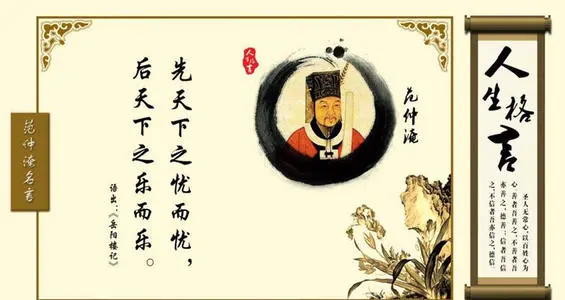 人生格言
圣人无常心，以百姓心为
心。善者吾善之，不善者吾
亦善之，德善；信者吾信
之，不信者吾亦信之，德信。
范仲淹
先天下之忧而忧，
后天下之乐而乐。
语出：《岳阳楼记》
范仲淹名言